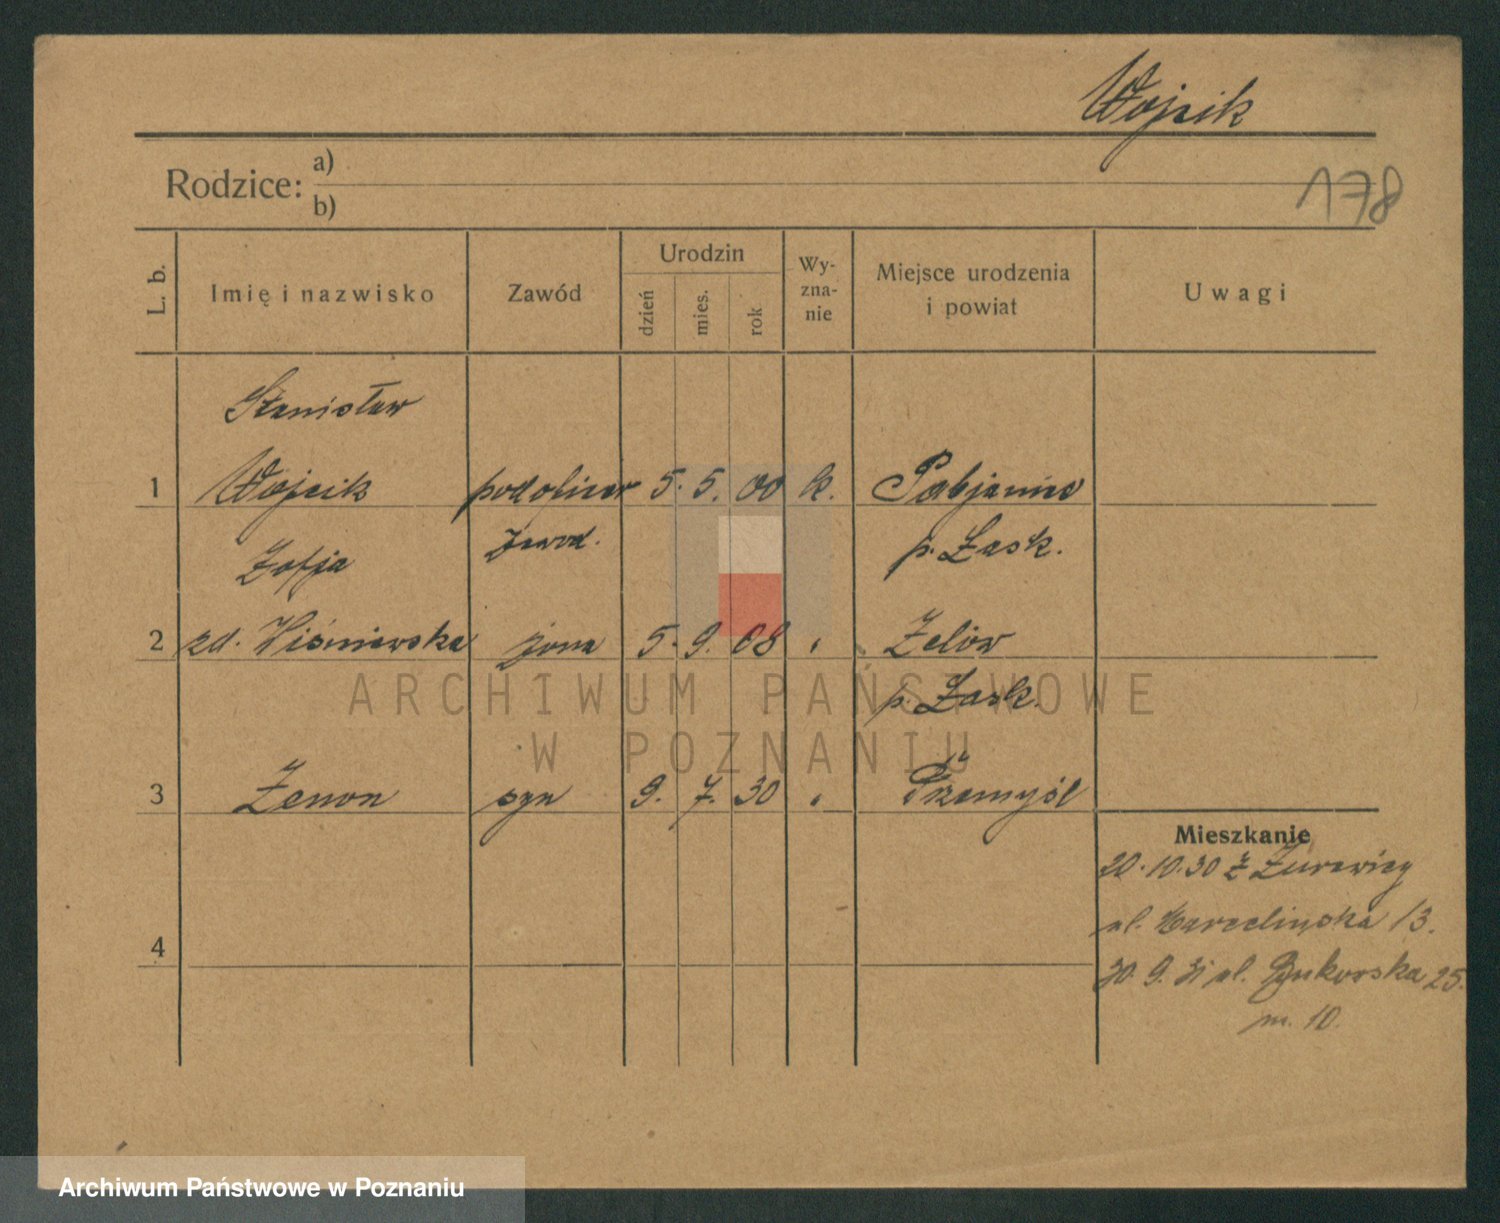 Wojcik
Rodzice: a)
b)
178
L. b.
Imię i nazwisko
Zawód
Urodzin
dzień
mies.
rok
Wy-
zna-
nie
Miejsce urodzenia
i powiat
Uwagi
Stanisław
1 Wojcik podoficer 5. 5. 00 k. Pabjanice
zawod. p. Łask.
Zofja
2 zd. Wiśniewska żona 5. 9. 08 Zelów
p. Łask.
3 Zenon syn 9. 7. 30 Przemyśl
4
Mieszkanie
20.10.30 z Żurawicy
ul. Marcelińska 13.
30. 9. 31 ul. Bukowska 25.
m. 10.
ARCHIWUM PAŃSTWOWE
W POZNANIU
Archiwum Państwowe w Poznaniu